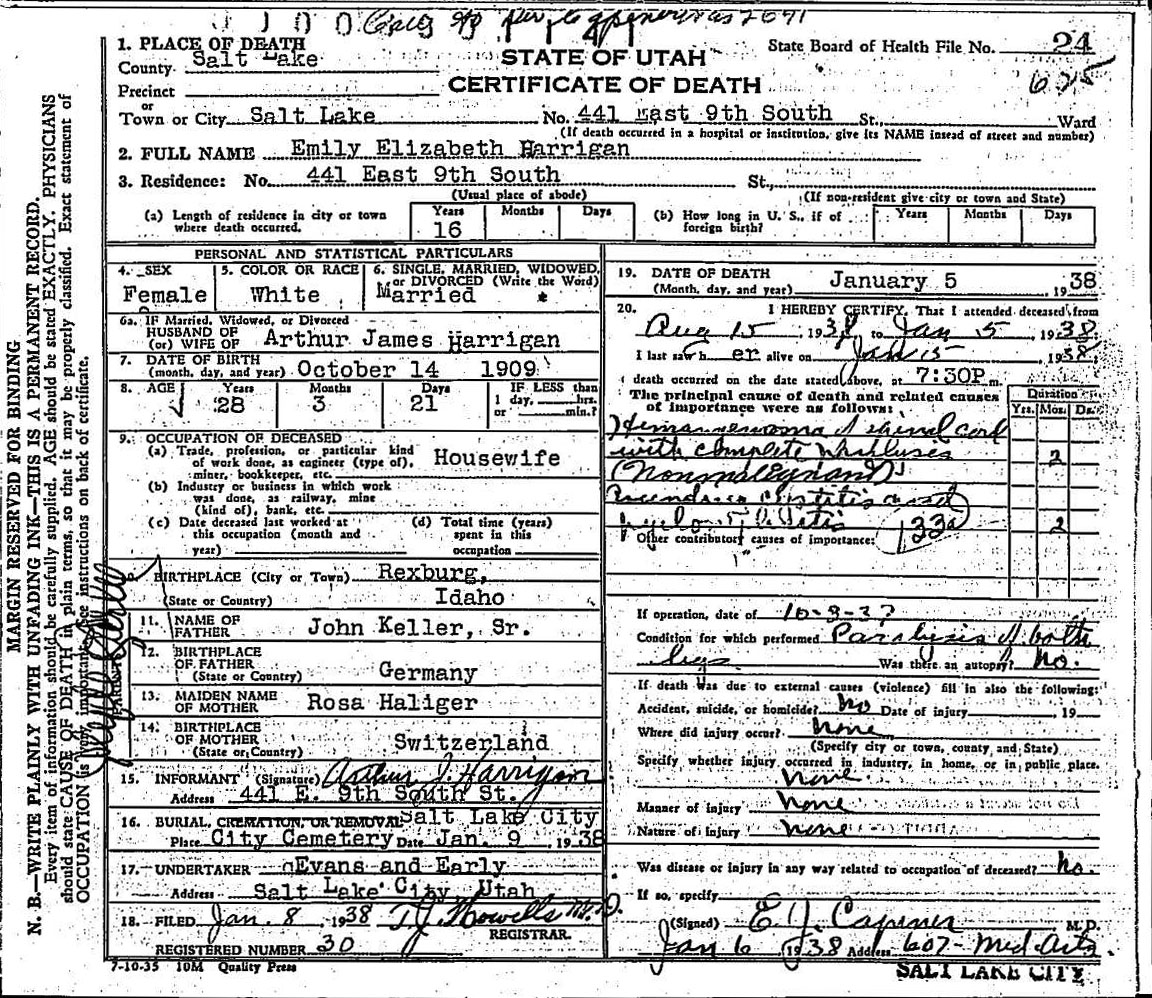 1. PLACE OF DEATH
County Salt Lake
Precinct
or
Town or City Salt Lake No. 441 East 9th South St., Ward
(If death occurred in a hospital or institution, give its NAME insead of street and number)
STATE OF UTAH
CERTIFICATE OF DEATH
State Board of Health File No. 24
625
2. FULL NAME Emily Elizabeth Harrigan
3. Residence: No. 441 East 9th South St.,
(Usual place of abode) (If non-resident give city or town and State)
(a) Length of residence in city or town where death occurred. Years 16 Months Days
(b) How long in U. S., if of foreign birth? Years Months Days
PERSONAL AND STATISTICAL PARTICULARS
4. SEX Female
5. COLOR OR RACE White
6. SINGLE, MARRIED, WIDOWED, or DIVORCED (Write the Word) Married
6a. IF Married, Widowed, or Divorced
HUSBAND OF
(or) WIFE OF Arthur James Harrigan
7. DATE OF BIRTH
(month, day, and year) October 14 1909
8. AGE Years 28 Months 3 Days 21 IF LESS than 1 day, hrs. or min.?
9. OCCUPATION OF DECEASED
(a) Trade, profession, or particular kind of work done, as engineer (type of), miner, bookkeeper, etc. Housewife
(b) Industry or business in which work was done, as railway, mine (kind of), bank, etc.
(c) Date deceased last worked at this occupation (month and year)
(d) Total time (years) spent in this occupation
BIRTHPLACE (City or Town) Rexburg,
(State or Country) Idaho
11. NAME OF FATHER John Keller, Sr.
12. BIRTHPLACE OF FATHER
(State or Country) Germany
13. MAIDEN NAME OF MOTHER Rosa Haliger
14. BIRTHPLACE OF MOTHER
(State or Country) Switzerland
15. INFORMANT (Signature) Arthur J. Harrigan
Address 441 E. 9th South St.
16. BURIAL, CREMATION, OR REMOVAL Salt Lake City
Place City Cemetery Date Jan. 9, 1938
17. UNDERTAKER Evans and Early
Address Salt Lake City Utah
18. FILED Jan. 8, 1938 T. J. Howells M.D.
REGISTRAR.
REGISTERED NUMBER 30
7-10-35 10M Quality Press
19. DATE OF DEATH
(Month, day, and year) January 5, 1938
20. I HEREBY CERTIFY, That I attended deceased from
Aug 15, 1938, to Jan 5, 1938
I last saw h er alive on Jan 5, 1938,
death occurred on the date stated above, at 7:30P m.
The principal cause of death and related causes of importance were as follows:
Duration
Yrs. Mos. Ds.
spinal cord
with complete 2
(Non malignant)
Ascending cystitis and
2
133a
Other contributory causes of importance:
If operation, date of 10-3-37
Condition for which performed Paralysis of both
legs Was there an autopsy? No.
If death was due to external causes (violence) fill in also the following:
Accident, suicide, or homicide? No Date of injury , 19
Where did injury occur? None
(Specify city or town, county, and State)
Specify whether injury occurred in industry, in home, or in public place.
None.
Manner of injury None
Nature of injury None
Was disease or injury in any way related to occupation of deceased? No.
If so, specify
(Signed) E. J. Capener M.D.
Jan 6, 1938 Address 607- Med Arts.
SALT LAKE CITY
MARGIN RESERVED FOR BINDING
N. B.—WRITE PLAINLY WITH UNFADING INK—THIS IS A PERMANENT RECORD.
Every item of information should be carefully supplied. AGE should be stated EXACTLY. PHYSICIANS
should state CAUSE OF DEATH in plain terms, so that it may be properly classified. Exact statement of
OCCUPATION is very important. See instructions on back of certificate.